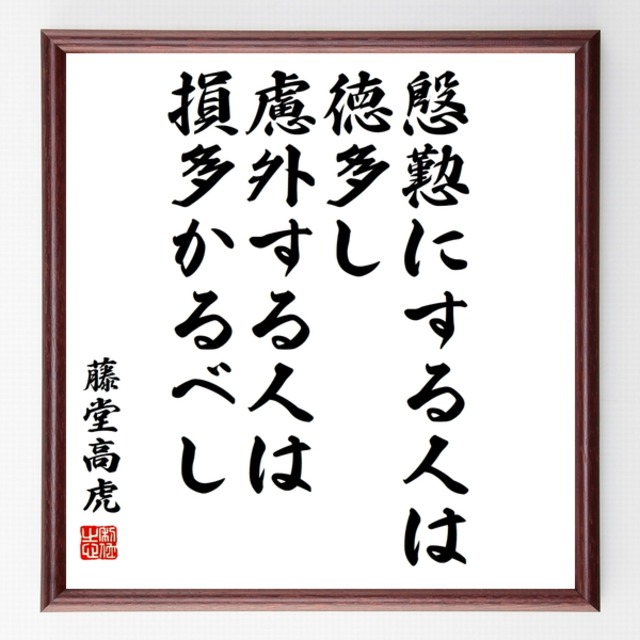 慇懃にする人は
徳多し
慮外する人は
損多かるべし
藤堂高虎